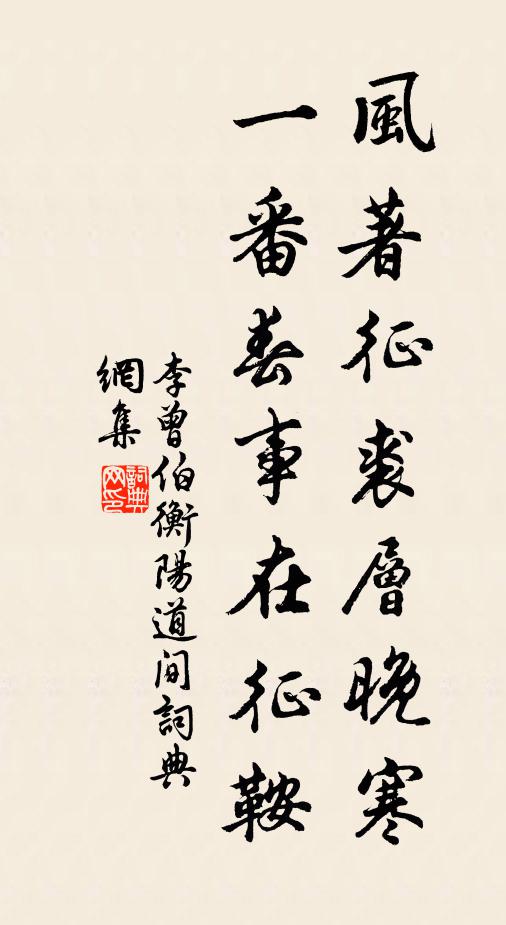 風著征裘層晚寒
一番春事在征鞍
李曾伯衡陽道間詞典
網集
詞典
网印